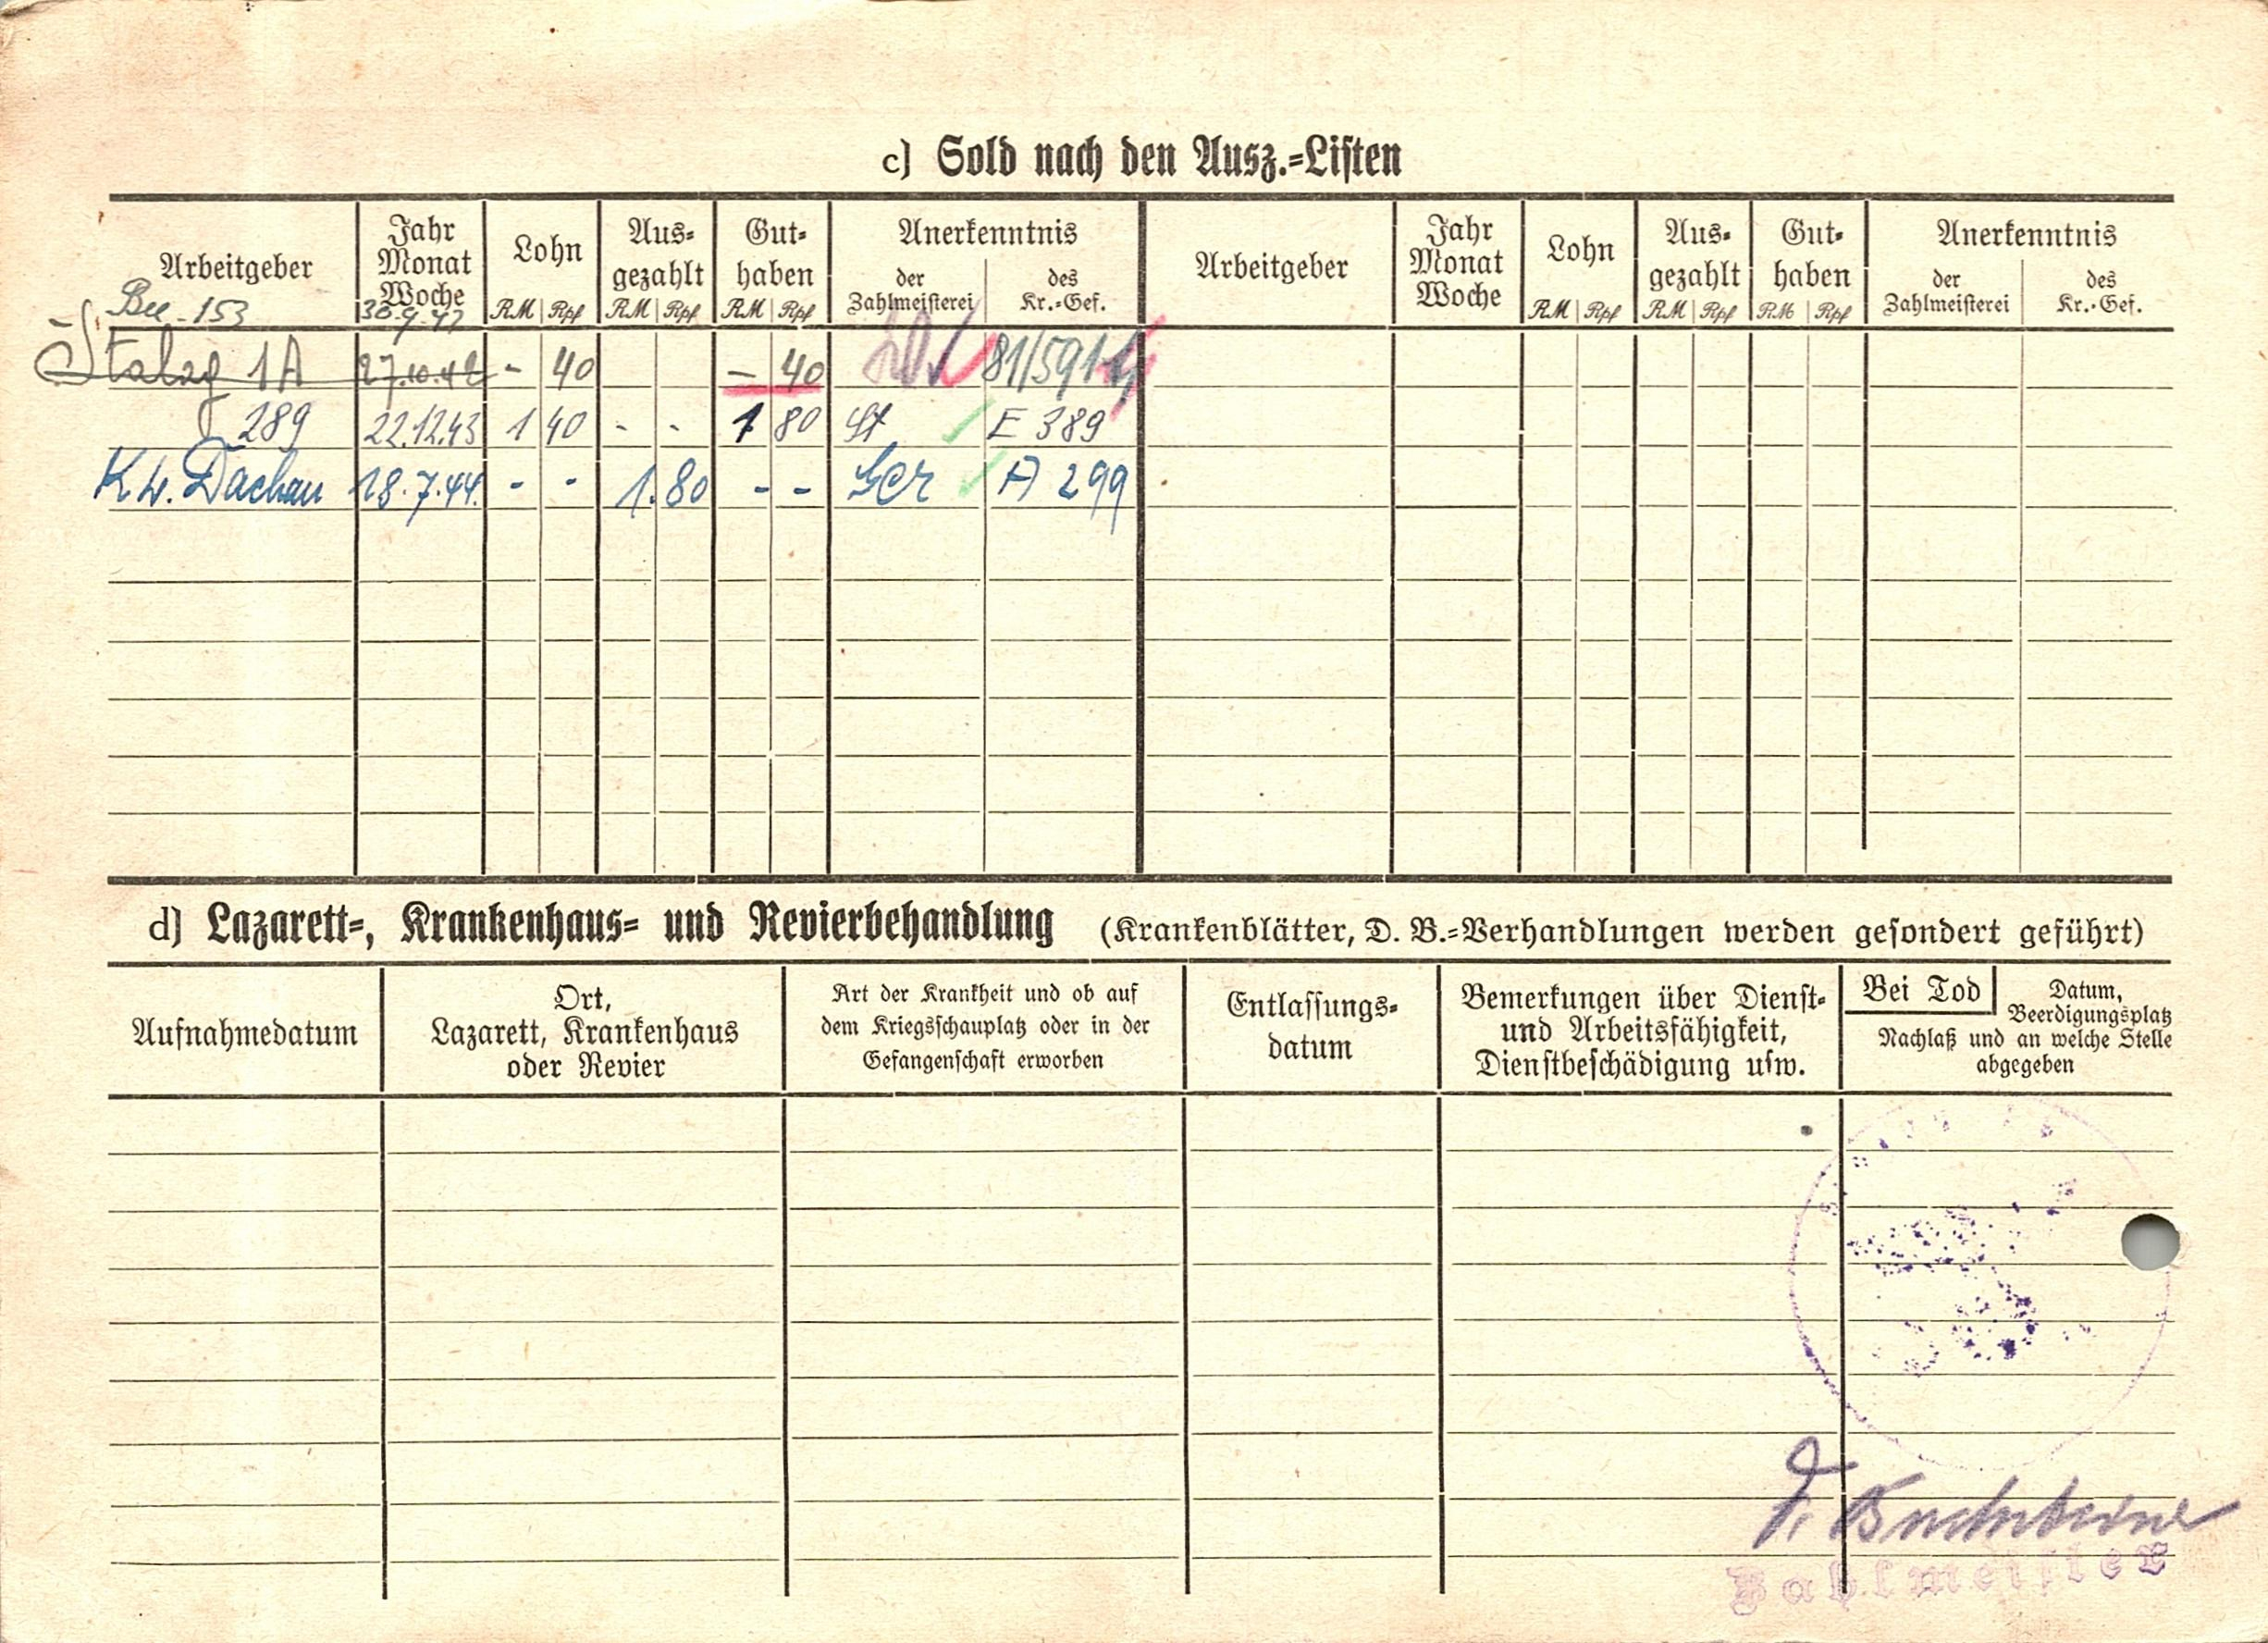 c) Sold nach den Ausz.-Listen
Arbeitgeber Jahr Monat Woche Lohn RM Rpf Ausgezahlt RM Rpf Guthaben RM Rpf Anerkenntnis der Zahlmeisterei des Kr.-Gef. Arbeitgeber Jahr Monat Woche Lohn RM Rpf Ausgezahlt RM Rpf Guthaben RM Rpf Anerkenntnis der Zahlmeisterei des Kr.-Gef.
153
Stalag 1A 27.10.42 - 40 - 40 81/591
289 22.12.43 1 40 - - 1 80 E 389
Dachau 18.7.44. - - 1.80 - - A 299
d) Lazarett-, Krankenhaus- und Revierbehandlung (Krankenblätter, D. B.-Verhandlungen werden gesondert geführt)
Aufnahmedatum Ort, Lazarett, Krankenhaus oder Revier Art der Krankheit und ob auf dem Kriegsschauplatz oder in der Gefangenschaft erworben Entlassungsdatum Bemerkungen über Dienst- und Arbeitsfähigkeit, Dienstbeschädigung usw. Bei Tod Datum, Beerdigungsplatz Nachlaß und an welche Stelle abgegeben
Zahlmeister